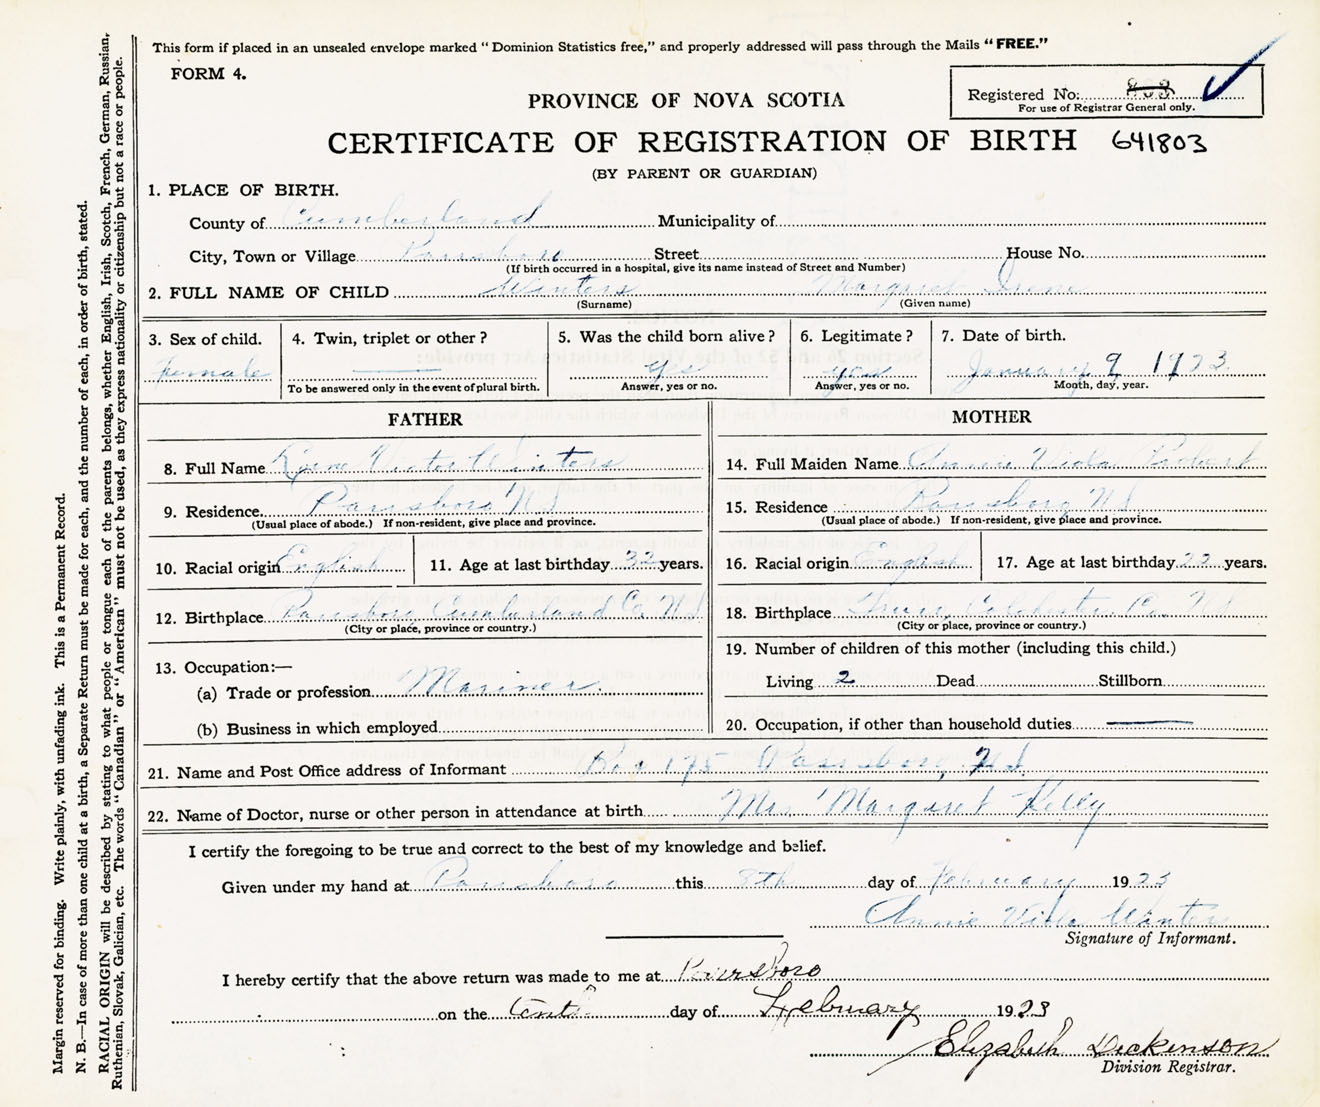 This form if placed in an unsealed envelope marked "Dominion Statistics free," and properly addressed will pass through the Mails "FREE."
FORM 4.
Registered No:
For use of Registrar General only.
PROVINCE OF NOVA SCOTIA
CERTIFICATE OF REGISTRATION OF BIRTH 641803
(BY PARENT OR GUARDIAN)
1. PLACE OF BIRTH.
County of Cumberland Municipality of
City, Town or Village Parrsboro Street House No.
(If birth occurred in a hospital, give its name instead of Street and Number)
2. FULL NAME OF CHILD Winters Margaret Irene
(Surname) (Given name)
3. Sex of child. 4. Twin, triplet or other? 5. Was the child born alive? 6. Legitimate? 7. Date of birth.
Female yes yes January 9 1923
To be answered only in the event of plural birth. Answer, yes or no. Answer, yes or no. Month, day, year.
FATHER MOTHER
8. Full Name Victor Winters 14. Full Maiden Name Annie Viola
9. Residence Parrsboro NS 15. Residence Parrsboro NS
(Usual place of abode.) If non-resident, give place and province. (Usual place of abode.) If non-resident, give place and province.
10. Racial origin English 11. Age at last birthday years. 16. Racial origin English 17. Age at last birthday years.
12. Birthplace Parrsboro Cumberland Co NS 18. Birthplace Truro Colchester Co. NS
(City or place, province or country.) (City or place, province or country.)
13. Occupation:— 19. Number of children of this mother (including this child.)
(a) Trade or profession Mariner. Living 2 Dead Stillborn
(b) Business in which employed 20. Occupation, if other than household duties
21. Name and Post Office address of Informant Box 175 Parrsboro NS
22. Name of Doctor, nurse or other person in attendance at birth Mrs Margaret Kelly
I certify the foregoing to be true and correct to the best of my knowledge and belief.
Given under my hand at Parrsboro this 8th day of February 1923
Annie Viola Winters
Signature of Informant.
I hereby certify that the above return was made to me at Parrsboro
on the tenth day of February 1923
Elizabeth Dickenson
Division Registrar.
Margin reserved for binding. Write plainly, with unfading ink. This is a Permanent Record.
N. B.—In case of more than one child at a birth, a Separate Return must be made for each, and the number of each, in order of birth, stated.
RACIAL ORIGIN will be described by stating to what people or tongue each of the parents belongs, whether English, Irish, Scotch, French, German, Russian,
Ruthenian, Slovak, Galician, etc. The words "Canadian" or "American" must not be used, as they express nationality or citizenship but not a race or people.